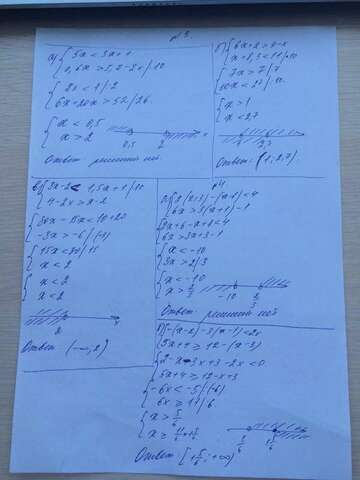 №3.
а) { 3x < 3x+1
0,6x > 5,2-2x |·10
{ 2x < 1 |:2
6x+20x > 52 |:26
{ x < 0,5
x > 2
0,5 2 x
Ответ решений нет.
б) { 6x+2 > 9-x
{ 7x > 7 |:7
{ x > 1
x < 2,7
Ответ: (1; 2,7).
в) { 3x-2 < 1,5x+1 |·10
4-2x > x-2
{ 30x-15x < 10+20
-3x > -6 |:(-3)
{ 15x < 30 |:15
x < 2
{ x < 2
x < 2
2 x
Ответ (-∞; 2)
№4
6x > 3(x+1)-1
{ 2x+6-x+2 < 4
6x > 3x+3-1
{ x < -10
3x > 2 |:3
{ x < -10
x > 2/3
-10 2/3
Ответ решений нет
{ -(x-2)-3(x-1) < 2x
5x+4 ≥ 12-(x-3)
{ 2-x-3x+3-2x < 0
5x+4 ≥ 12-x+3
{ -6x < -5 |:(-6)
6x ≥ 11 |:6
{ x > 5/6
x ≥ 11/6 = 1 5/6
5/6 1 5/6
Ответ [1 5/6; +∞)